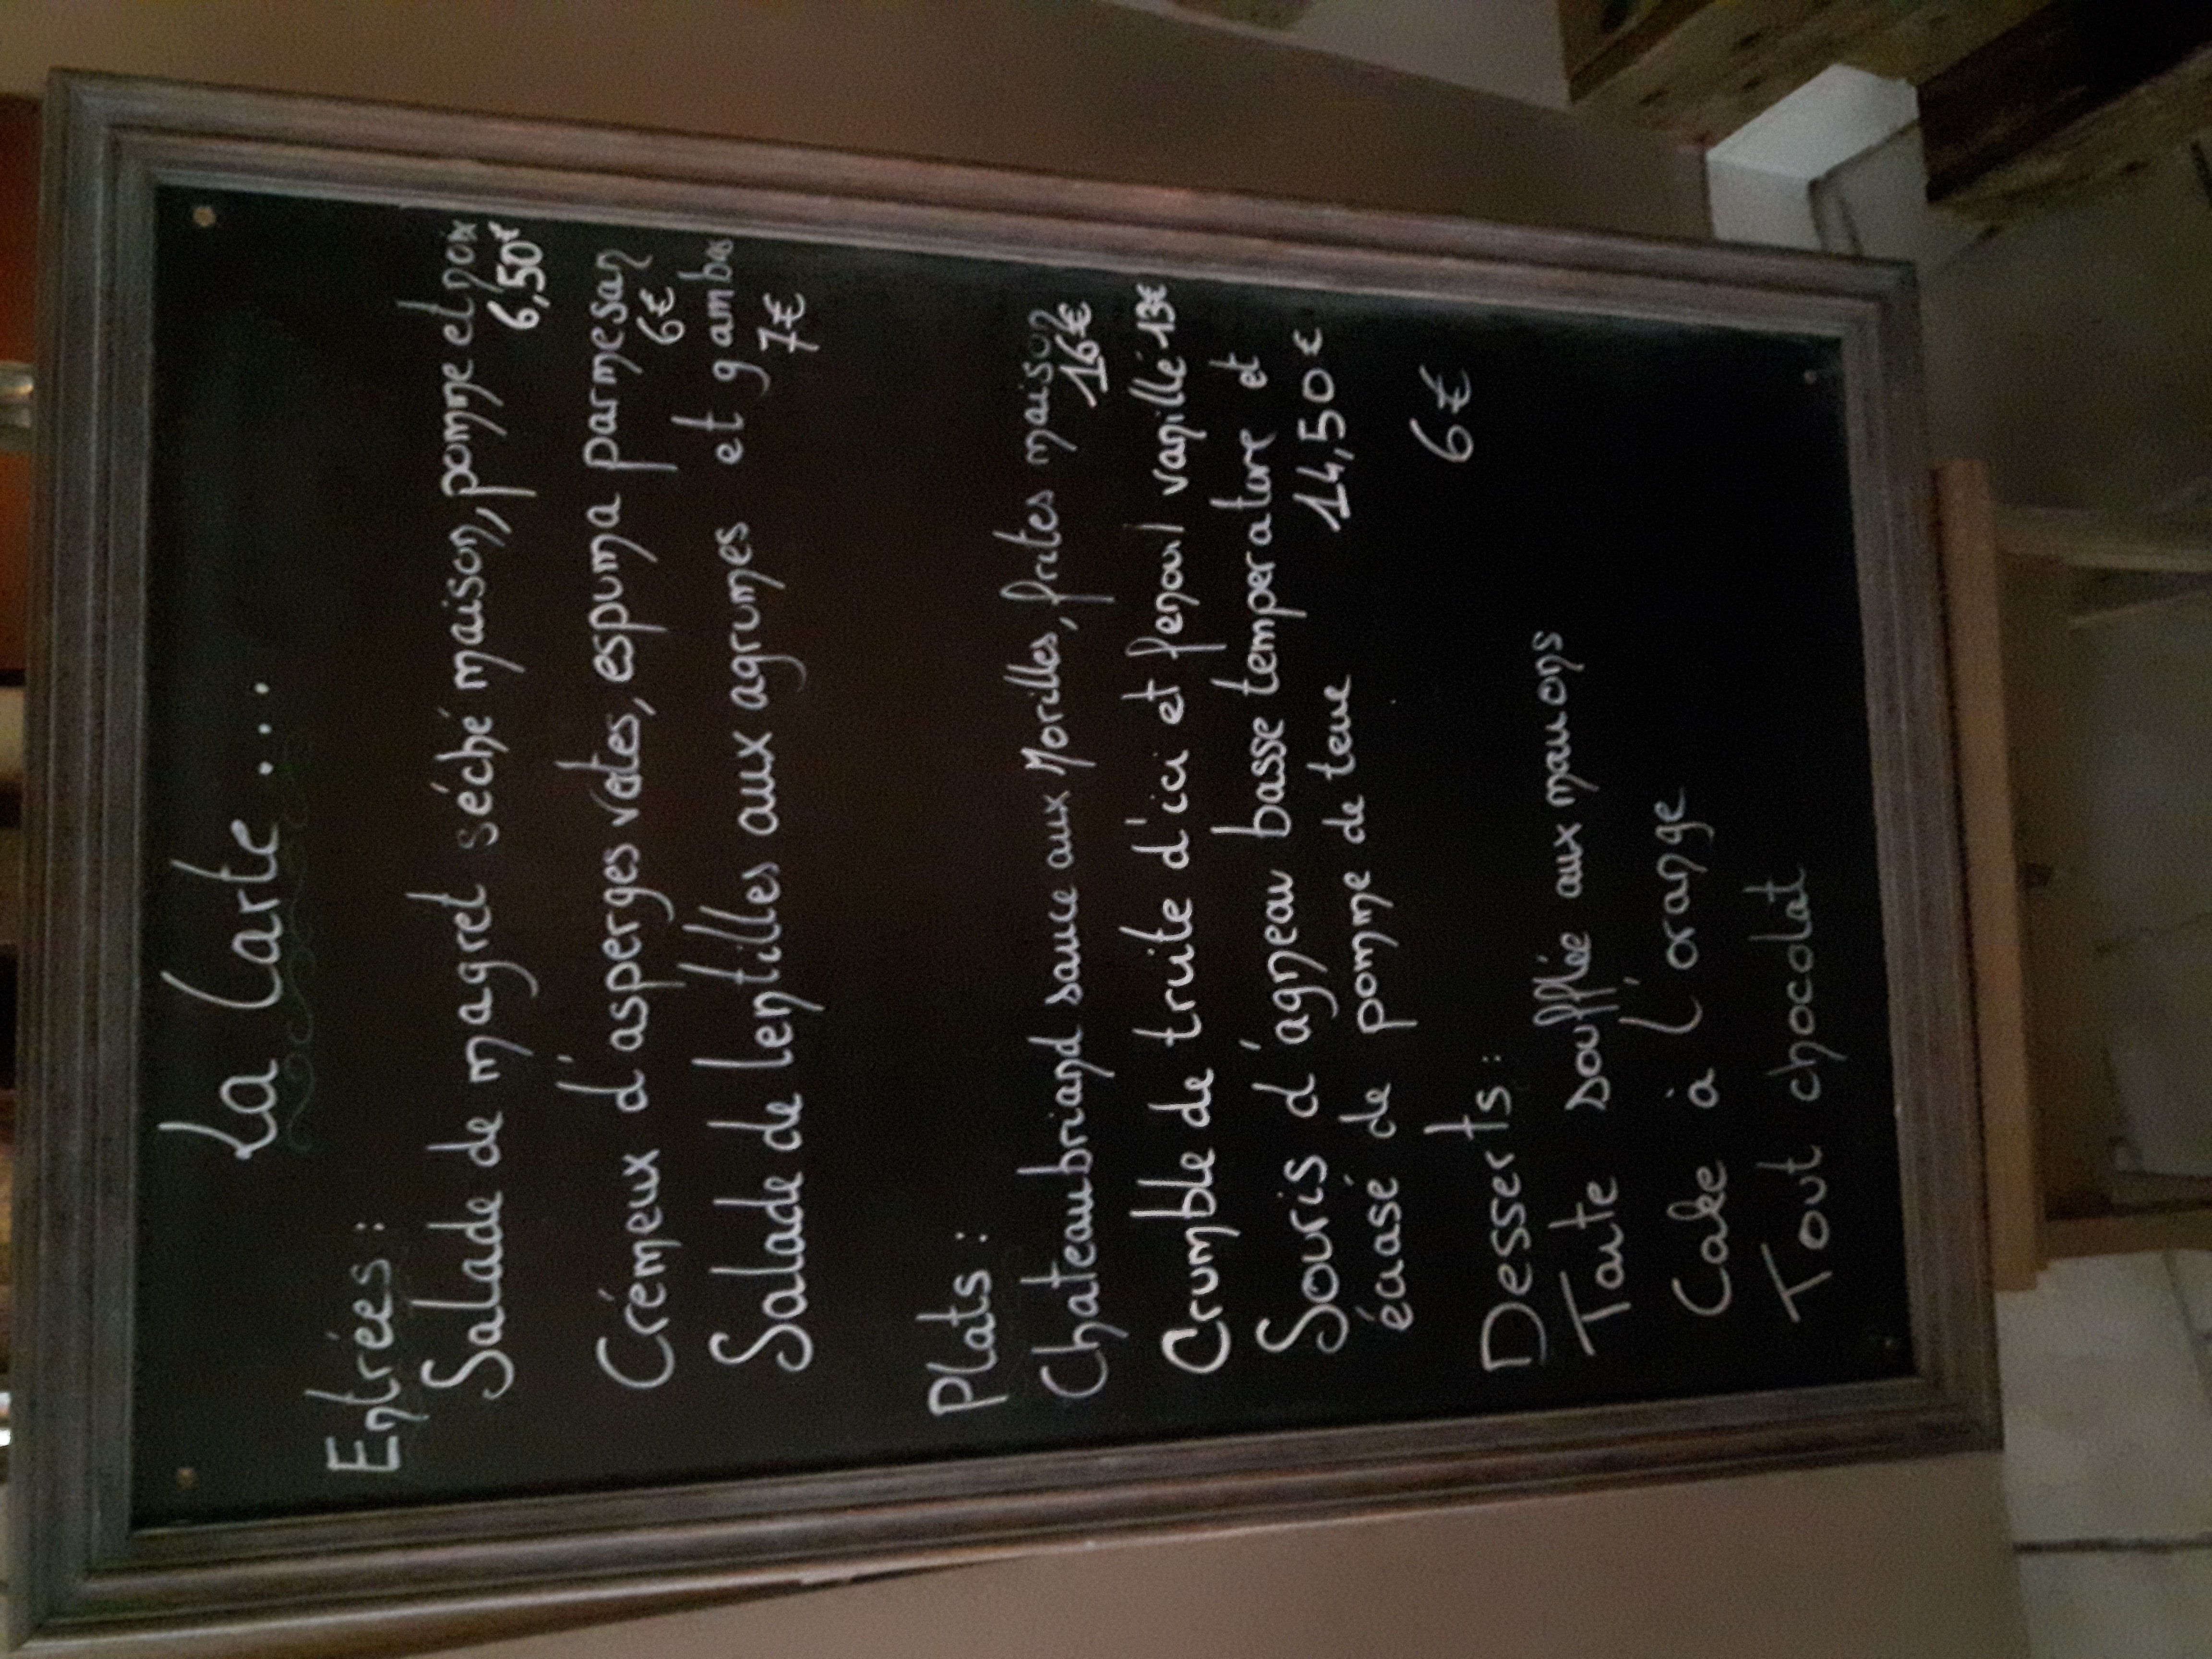 La Carte...
Entrées :
Salade de magret séché maison, pomme et noix
6,50€
Crémeux d'asperges vertes, espuma parmesan
6€
Salade de lentilles aux agrumes et gambas
7€
Plats :
Chateaubriand sauce aux Morilles, frites maison
16€
Crumble de truite d'ici et fenouil vanillé 13€
Souris d'agneau basse temperature et
écrasé de pomme de terre 14,50€
Desserts : 6€
Tarte soufflée aux marrons
Cake à l'orange
Tout chocolat